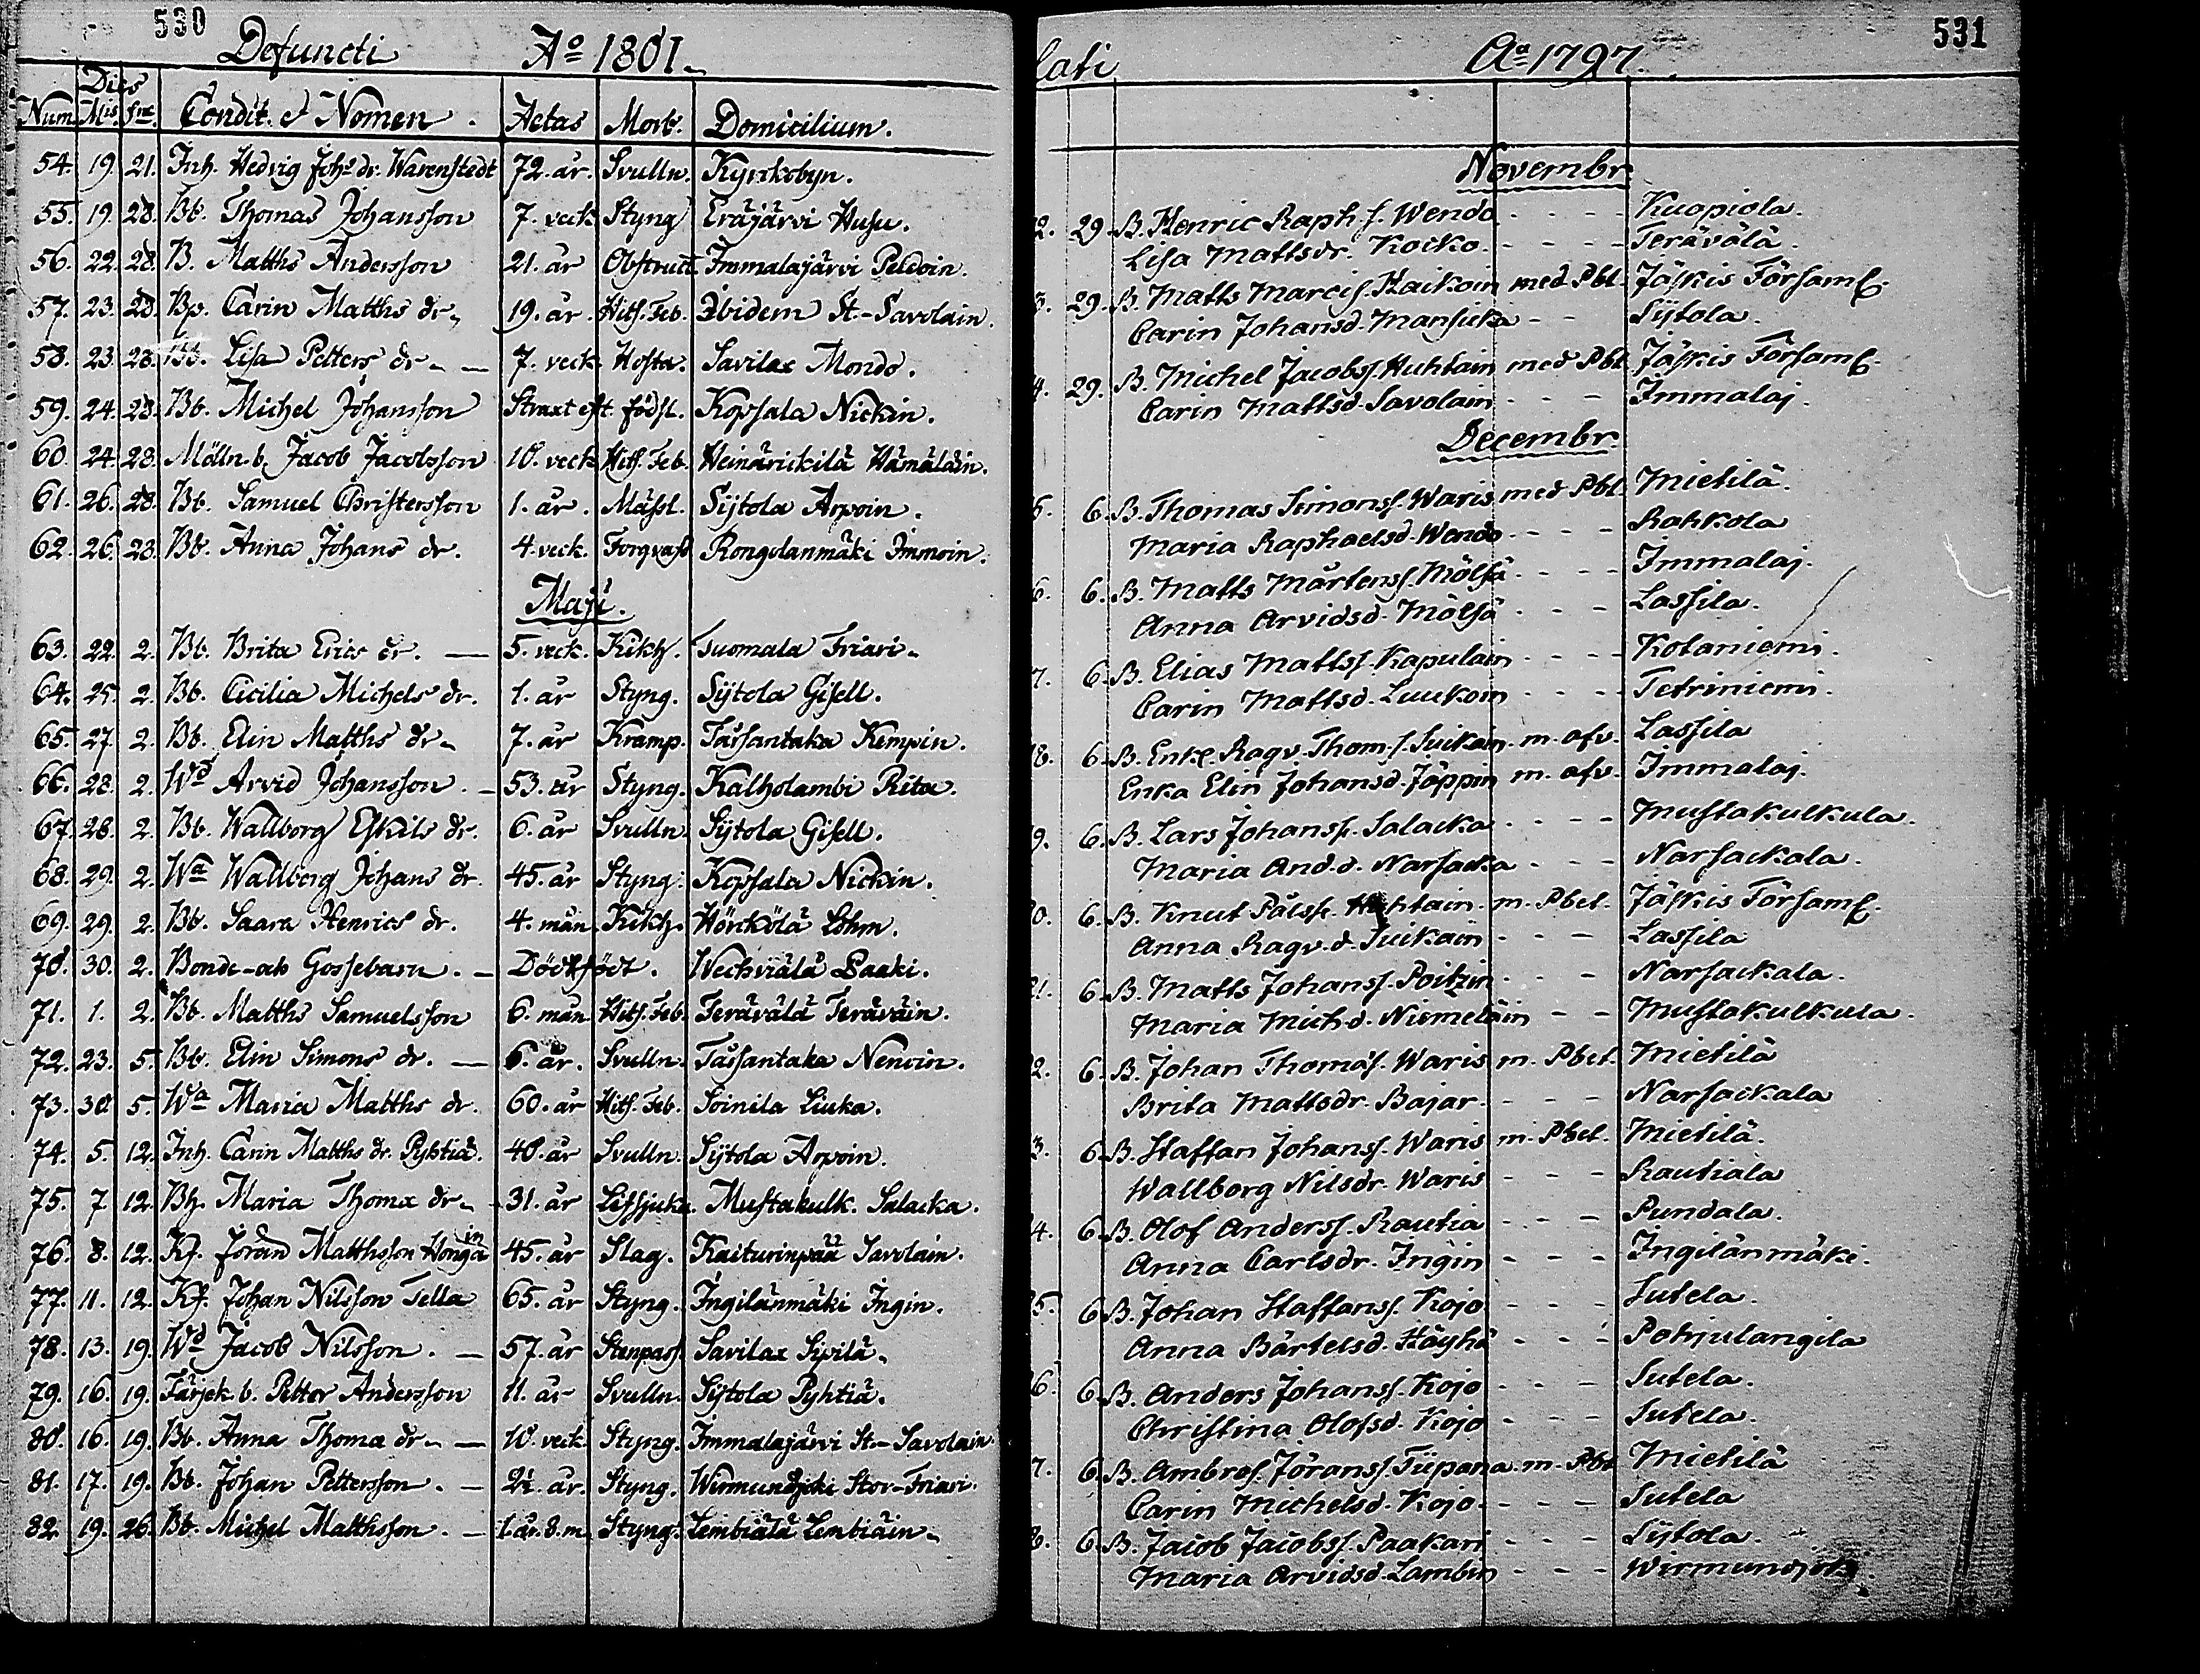 530
Defuncti Aº 1801.
Dies
Num. Mis. Sne. Condit. et Nomen. Aetas Morb. Domicilium.
54. 19. 21. Inh. Hedvig Johs dr. Warenstedt 72. år. Svulln. Kyrckobyn.
55. 19. 28. Bb. Thomas Johansson 7. veck Styng Eräjärvi Husu.
56. 22. 28. B. Matths Andersson 21. år Obstruct. Immalajärvi Peldoin.
57. 23. 28. Bp. Carin Matths dr. 19. år. Hits. Feb. Ibidem St.-Savolain.
58. 23. 28. Bb. Lisa Petters dr. — 7. veck. Hosta. Savilax Mondo.
59. 24. 28. Bb. Michel Johansson Straxt eft. födsl. Kopsala Nickin.
60. 24. 28. Mölln. b. Jacob Jacobsson 10. veck Hits. Feb. Heinärickilä Hämäläin.
61. 26. 28. Bb. Samuel Christersson 1. år. Mässl. Sijtola Arpoin.
62. 26. 28. Bb. Anna Johans dr. 4. veck. Torgvass Rongolanmäki Immoin.
Maji.
63. 22. 2. Bb. Brita Erics dr. — 5. veck. Kikh. Suomala Friari.
64. 25. 2. Bb. Cicilia Michels dr. 1. år Styng. Sijtola Gisell.
65. 27. 2. Bb. Elin Matths dr. 7. år Kramp. Tassantaka Kempin.
66. 28. 2. Wd Arvid Johansson. — 53. år Styng. Kalholambi Rita.
67. 28. 2. Bb. Wallborg Eskils dr. 6. år Svulln. Sijtola Gisell.
68. 29. 2. Wa Wallborg Johans dr. 45. år Styng. Kopsala Nickin.
69. 29. 2. Bb. Saara Henrics dr. 4. mån. Kikh. Hörckölä Lohm.
70. 30. 2. Bonde-ab Gossebarn. — Dödfödt. Wechviälä Paaki.
71. 1. 2. Bb. Matths Samuelsson 6. mån. Hits. Feb. Terävälä Teräväin.
72. 23. 5. Bb. Elin Simons dr. — 6. år. Svulln. Tassantaka Nenoin.
73. 30. 5. Wa Maria Matths dr. 60. år Hits. Feb. Soinila Liuka.
74. 5. 12. Inh. Carin Matths dr. Pyhtiä. 40. år Svulln. Sijtola Arpoin.
75. 7. 12. Bh. Maria Thomæ dr. 31. år Lifssjuka. Mustakulk. Salacka.
76. 8. 12. Kf. Jöran Matthsson Hongain 45. år Slag. Kaiturinpää Savolain.
77. 11. 12. Kf. Johan Nilsson Tella 65. år Styng. Ingilänmäki Ingin.
78. 13. 19. Wd Jacob Nilsson. — 57. år Stenpass. Savilax Sipilä.
79. 16. 19. Färjek. b. Petter Andersson 11. år Svulln. Sijtola Pyhtiä.
80. 16. 19. Bb. Anna Thomæ dr. — 10. veck. Styng. Immalajärvi St.-Savolain.
81. 17. 19. Bb. Johan Pettersson. — 2½. år. Styng. Wirmundjoki Stor-Friari.
82. 19. 26. Bb. Michel Matthsson. — 1. år. 8. m. Styng. Lembiälä Lembiäin.
531
lati Aº 1797.
Novembr.
2. 29. B. Henric Raph. s. Wendo - - - - Kuopiola.
Lisa Mattsdr. Koiko. - - - - Terävälä.
3. 29. B. Matts Marcis. Haikoin med Pbl. Jäskis Församl.
Carin Johansd. Mansicka - - Sijtola.
4. 29. B. Michel Jacobss. Huhtain med Pbl. Jäskis Församl.
Carin Mattsd. Savolain - - - Immalaj.
Decembr.
5. 6. B. Thomas Simonss. Waris med Pbl. Mietilä.
Maria Raphaelsd. Wendo. - - - Rahkola
6. 6. B. Matts Mårtenss. Mölsä. - - - Immalaj.
Anna Arvidsd. Mölsä - - - Lassila.
7. 6. B. Elias Mattss. Kapulain - - - - Kotaniemi.
Carin Mattsd. Luukoin - - - - Tetriniemi.
8. 6. B. Enkl. Ragv. Thom. s. Suikain. m. afv. Lassila
Enka Elin Johansd. Jäppin m. afv. Immalaj.
9. 6. B. Lars Johanss. Salacka. - - - - Mustakulkula.
Maria And. d. Narsacka - - - Narsackala.
0. 6. B. Knut Pålss. Huhtain. m. Pbet. Jäskis Församl.
Anna Ragv. d. Suikain - - - Lassila
21. 6. B. Matts Johanss. Poitzin - - - Narsackala.
Maria Mich. d. Niemeläin - - Mustakulkula.
2. 6. B. Johan Thomas. Waris m. Pbet. Mietilä
Brita Mattsdr. Bajar. - - - Narsackala
3. 6. B. Staffan Johanss. Waris m. Pbet. Mietilä.
Wallborg Nilsdr. Waris - - - Rautiala
4. 6. B. Olof Anderss. Rautia - - - Pundala.
Anna Carlsdr. Ingin - - - Ingilänmäki.
5. 6. B. Johan Staffanss. Kojo - - - Sutela.
Anna Bärtelsd. Häyhä - - - Pohjulangila
6. 6. B. Anders Johanss. Kojo - - - Sutela.
Christina Olofsd. Kojo - - - Sutela.
7. 6. B. Ambros. Jöranss. Tiipana. m. Pbt Mietilä
Carin Michelsd. Kojo. - - - Sutela
8. 6. B. Jacob Jacobss. Paakari - - - Sijtola.
Maria Arvidsd. Lambin - - - Wirmundjoki.